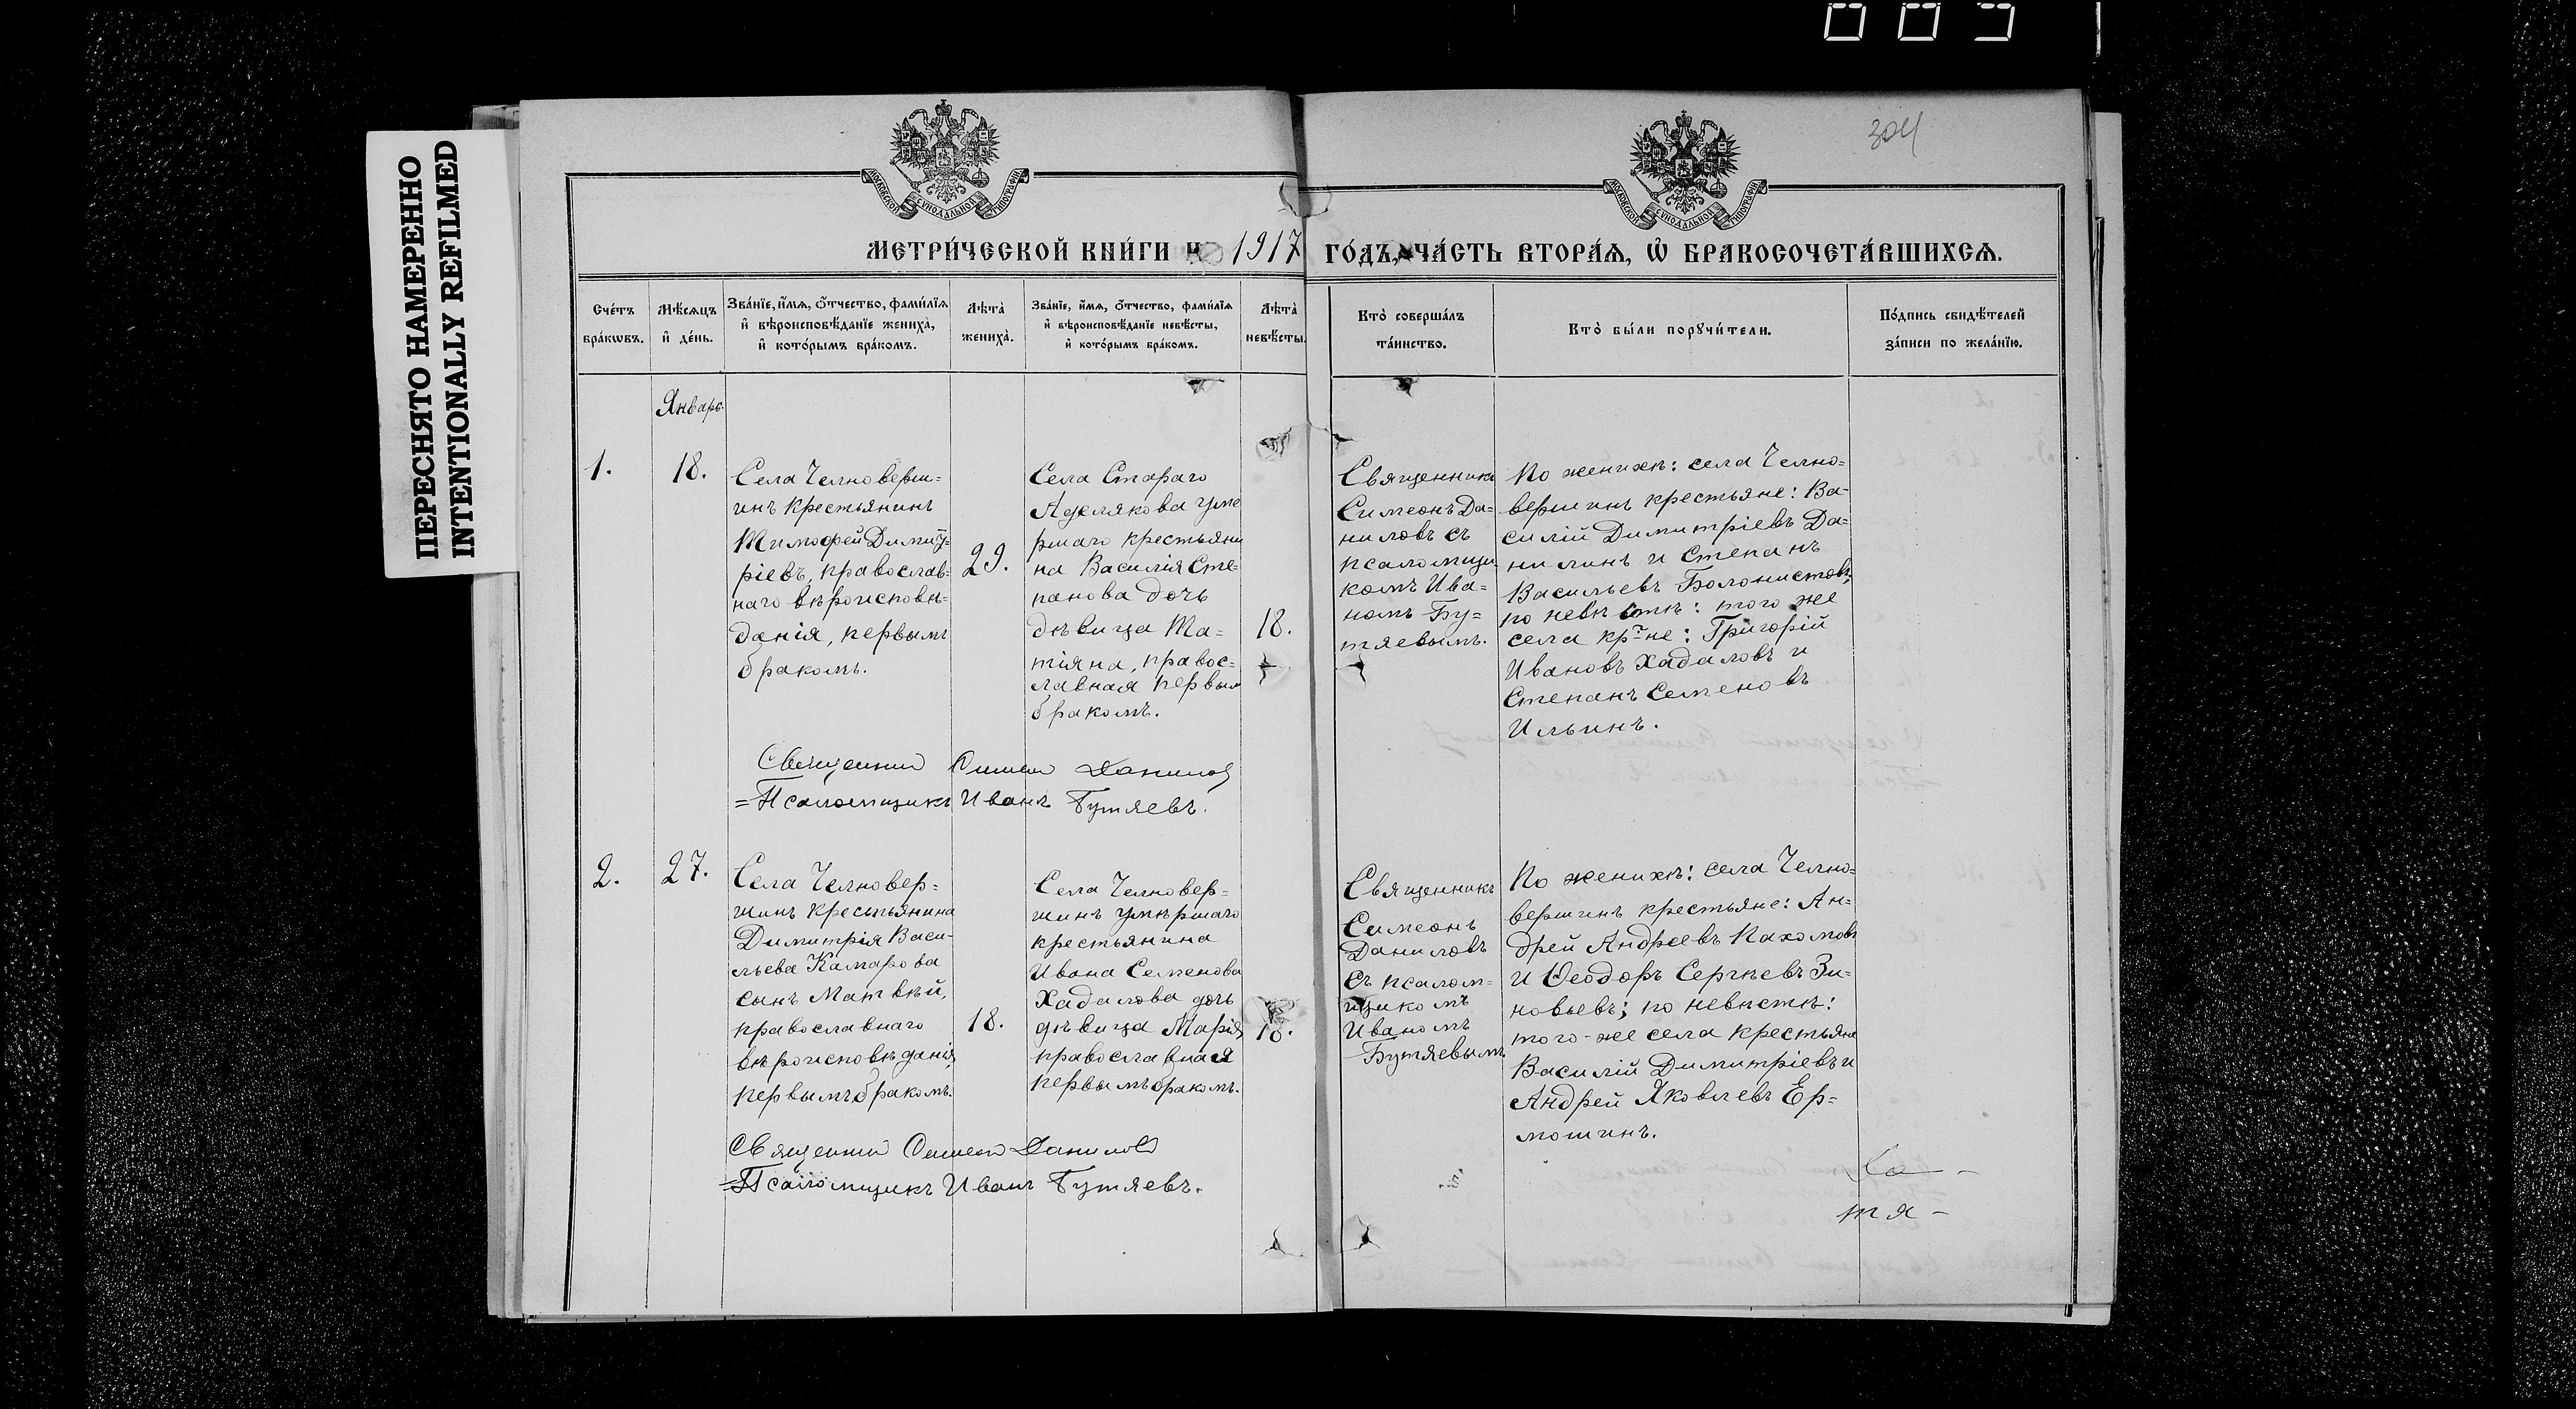 009
ПЕРЕСНЯТО НАМЕРЕННО
INTENTIONALLY REFILMED
304
МОСКОВСКОЙ СѴНОДАЛЬНОЙ ТИПОГРАФІИ
МОСКОВСКОЙ СѴНОДАЛЬНОЙ ТИПОГРАФІИ
МЕТРИ́ЧЕСКОЙ КНИ́ГИ НА 1917 ГО́ДЪ, ЧА́СТЬ ВТОРА́Ѧ, Ѽ БРАКОСОЧЕТА́ВШИХСѦ.
Сче́тъ
бра́кѡвъ.
Мѣ́сѧцъ
и҆ де́нь.
Зва́нїе, и҆́мѧ, ѻ҆́тчество, фами́лїѧ
и҆ вѣроисповѣ́данїе жениха̀,
и҆ кото́рымъ бра́комъ.
Лѣта̀
жениха̀.
Зва́нїе, и҆́мѧ, ѻ҆́тчество, фами́лїѧ
и҆ вѣроисповѣ́данїе невѣ́сты,
и҆ кото́рымъ бра́комъ.
Лѣта̀
невѣ́сты.
Кто̀ соверша́лъ
та́инство.
Кто̀ бы́ли порꙋчи́тели.
По́дпись свидѣ́телей
за́писи по жела́нїю.
Январь.
1.
18.
Села Челноверш=
инъ крестьянинъ
Тимофей Димит=
ріевъ, православ=
наго вѣроисповѣ=
данія, первымъ
бракомъ.
29.
Села Стараго
Аделякова уме
ршаго крестьяни
на Василія Сте=
панова дочь
дѣвица Та=
тіяна, правос=
лавная первым
бракомъ.
18.
Священникъ
Симеонъ Да=
ниловъ съ
псаломщи
комъ Ива=
номъ Бу=
тяевымъ.
По женихѣ: села Челно=
вершинъ крестьяне: Ва=
силій Димитріевъ Да=
нилинъ и Степанъ
Васильевъ Болонистовъ,
по невѣстѣ: того же
села кр-не: Григорій
Ивановъ Хадаловъ и
Степанъ Семеновъ
Ильинъ.
Священникъ Симеон Данилов
=Псаломщикъ Иванъ Бутяевъ.
2.
27.
Села Челновер=
шинъ крестьянина
Димитрія Васи-
льева Камарова
сынъ Матвѣй,
православнаго
вѣроисповѣданія,
первымъ бракомъ.
18.
Села Челновер=
шинъ умѣршаго
крестьянина
Ивана Семенова
Хадалова дочь
дѣвица Марія,
православная
первымъ бракомъ.
18.
Священникъ
Симеонъ
Даниловъ
съ псалом=
щикомъ
Иваномъ
Бутяевымъ
По женихѣ: села Челно=
вершинъ крестьяне: Ан=
дрей Андреевъ Пахомовъ
и Ѳеодоръ Сергѣевъ Зи=
новьевъ; по невѣстѣ:
того-же села крестьяне
Василій Димитріевъ и
Андрей Яковлевъ Ер=
мошинъ.
Священник Симеон Данилов
=Псаломщикъ Иванъ Бутяевъ.
тя-